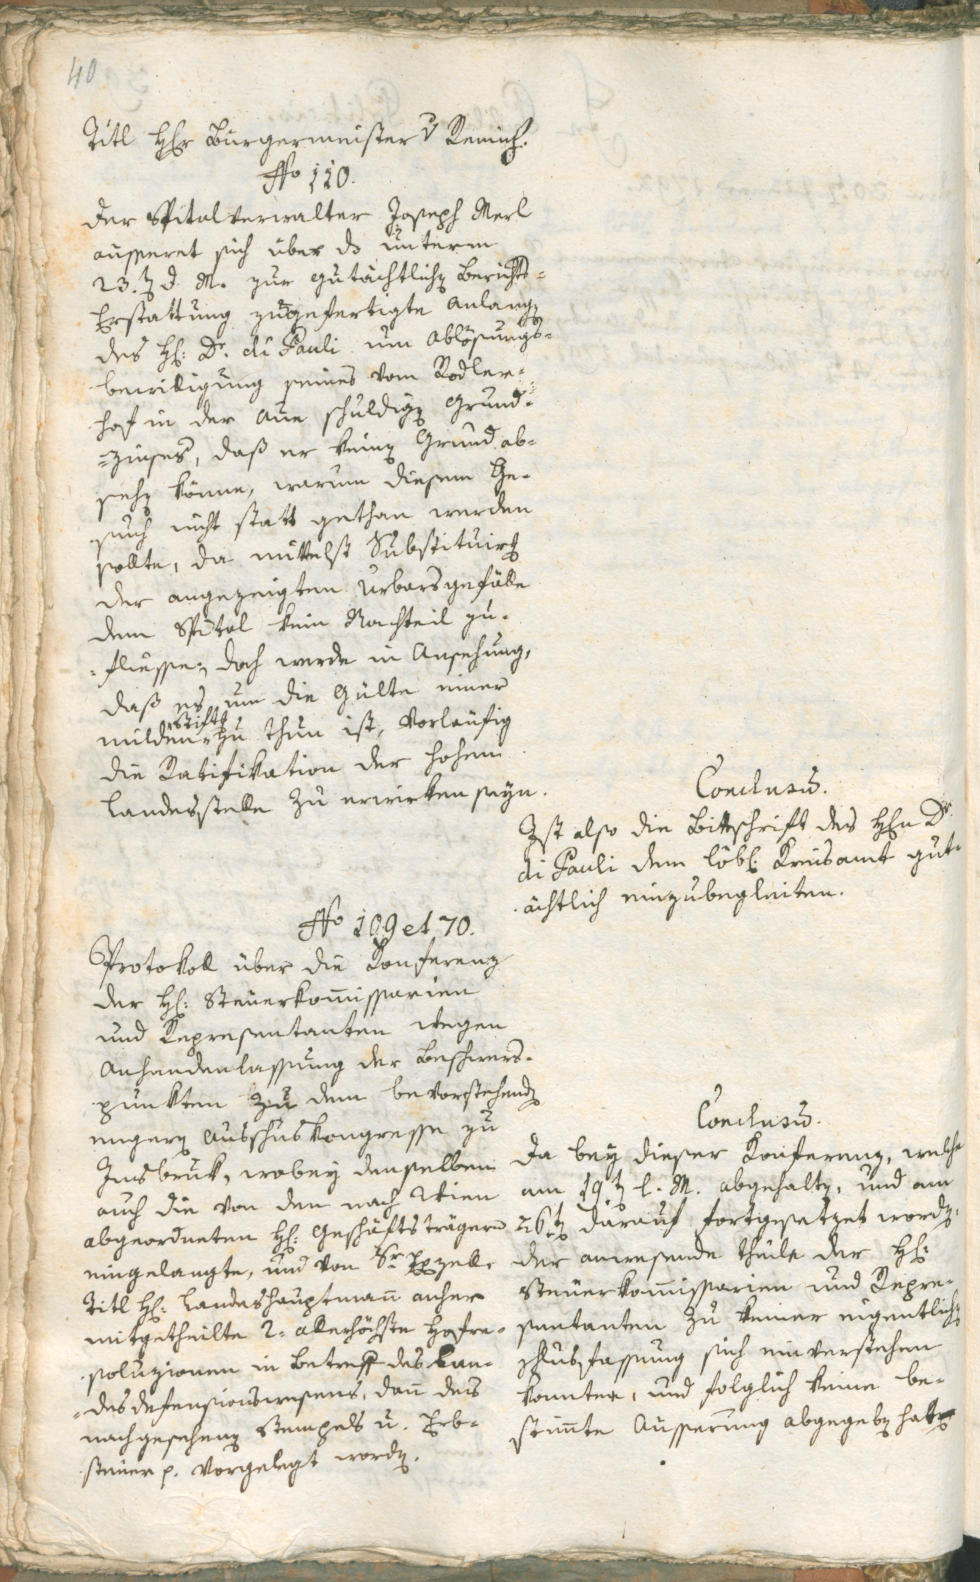 40
Titl Hr Bürgermeister v Remich.
No 110.
Der Spitalverwalter Joseph Merl
äusseret sich über ds unterm
23.t d. M. zur gutächtlichen Berichts-
Erstattung zugefertigte Anlangen
des H: Dr. di Pauli um Ablösungs-
bewilligung seines vom Rodler-
hof in der Aue schuldigen Grund-
=zinses, daß er keinen Grund ab-
sehen könne, warum diesem Ge-
such nicht statt gethan werden
sollte, da mittelst Substituirung
der angezeigten Urbarsgefälle
dem Spital kein Nachteil zu-
fliesse; doch werde in Ansehung,
daß es um die Gülte einer
milden Stiftg zu thun ist, vorläufig
die Ratifikation der hohen
Landesstelle zu erwirken seyn.
Conclusum.
Ist also die Bittschrift des Hn Dr.
di Pauli dem löbl. Kreisamt gut-
ächtlich einzubegleiten.
No 109 et 70.
Protokoll über die Konferenz
der H: Steuerkommissarien
und Representanten wegen
Anhandenlassung der Beschwers-
punkten zu dem bevorstehenden
engern Ausschuskongresse zu
Insbruk, wobey denselben
auch die von den nach Wien
abgeordneten H: Geschäftsträgern
eingelangte, und von Sr Exzell.
Titl H: Landeshauptmann anher
mitgetheilte 2. allerhöchste Hofre-
soluzionen in Betreff des Lan-
desdefensionswesens, dann des
nachgesehenen Stempels u. Erb-
steuer p. vorgelegt worden.
Conclusum.
Da bey dieser Konferenz, welche
am 19.t l. M. abgehalten, und am
26.t darauf fortgesetzet worden,
der anwesende Theile der H:
Steuerkommissarien und Repre-
sentanten zu keiner eigentlichen
Schlusfassung sich einverstehen
konnten, und folglich keine be-
stimmte Äusserung abgegeben haben